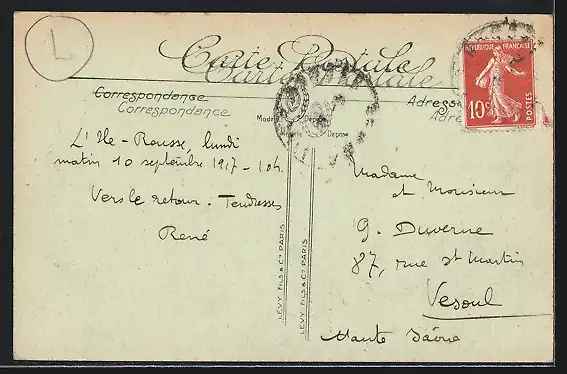 L
Carte Postale
Carte Postale
Correspondance
Correspondance
Adresse
Adre
REPUBLIQUE FRANÇAISE
10c
POSTES
Modèle Déposé
Modèle Déposé
L'Ile-Rousse, lundi
matin 10 septembre 1917 - 10h.
Vers le retour. Tendresses
René
LEVY FILS & Cie PARIS
LEVY FILS & Cie PARIS
Madame
et Monsieur
G. Duverne
87, rue St Martin
Vesoul
Haute Saône